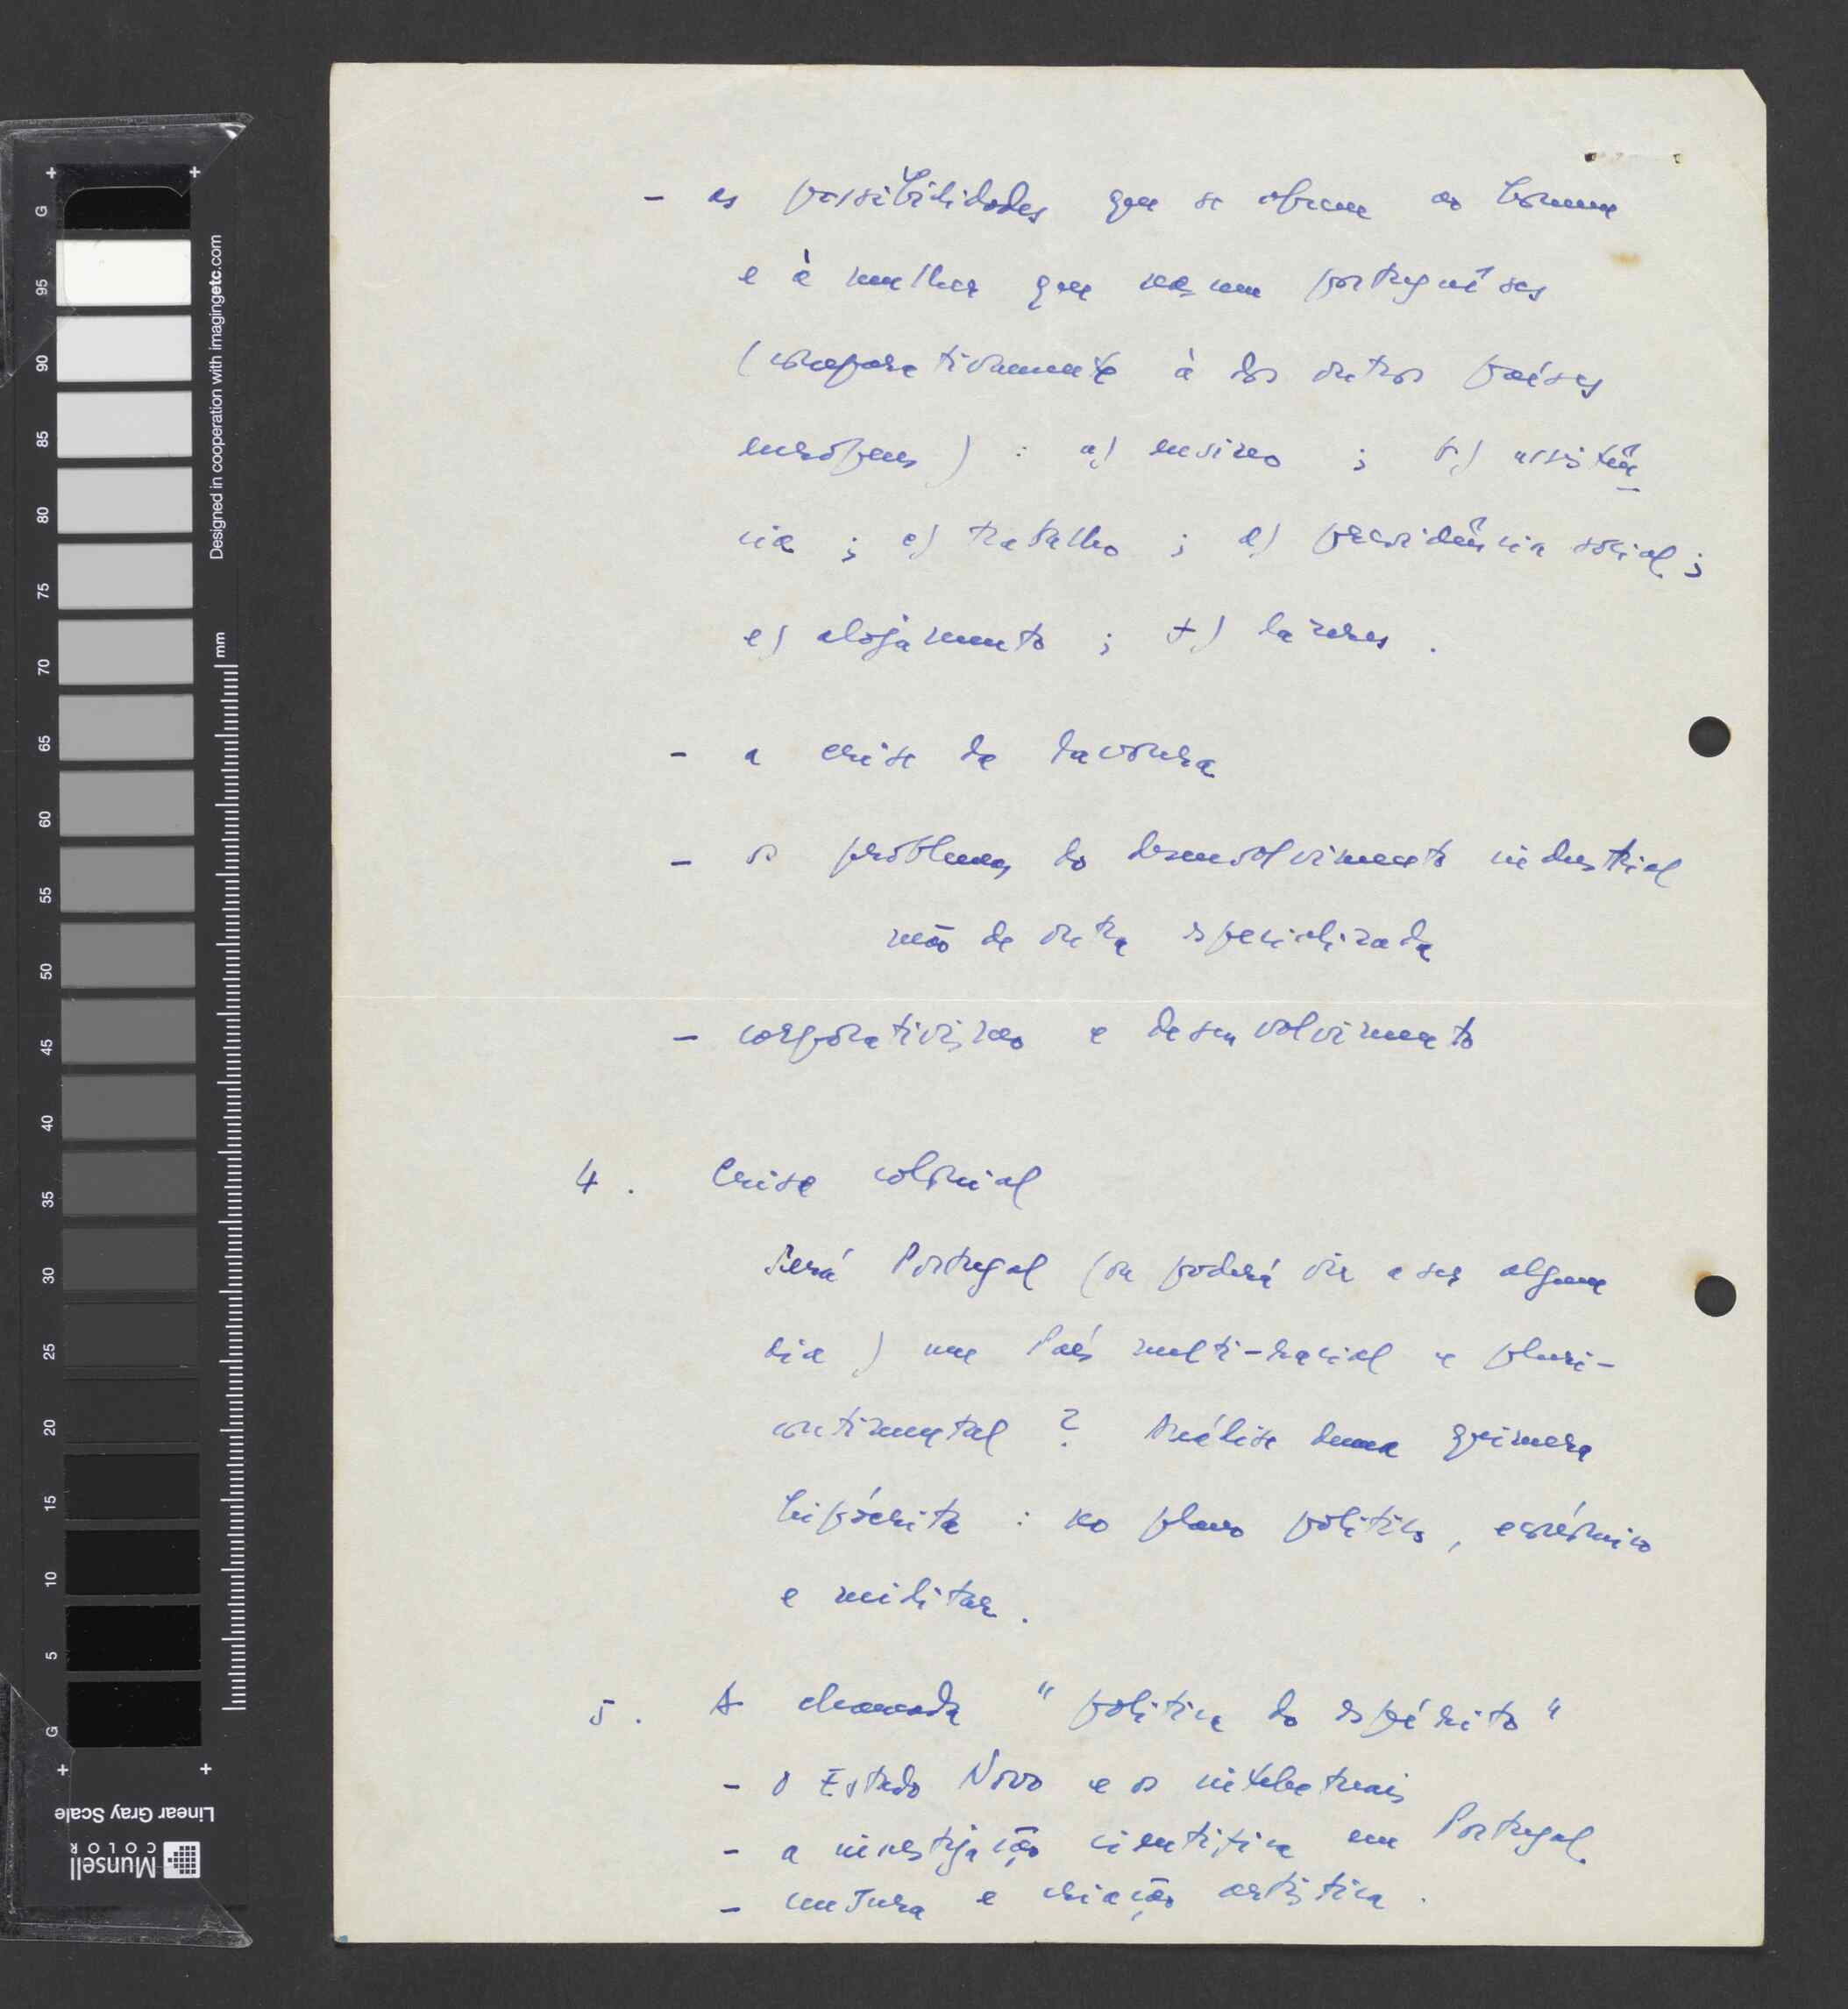 - as possibilidades que se abrem ao homem
e à mulher que nascem portugueses
(comparativamente à dos outros países
europeus) : a) ensino ; b) assistên
cia ; c) trabalho ; d) previdência social ;
e) alojamento ; f) lazeres .
- a crise da lavoura
- os problemas do desenvolvimento industrial
mão de obra especializada
- corporativismo e desenvolvimento
4 . Crise colonial
Será Portugal (ou poderá vir a ser algum
dia ) um País multi-racial e pluri-
continental ? Análise duma quimera
hipócrita : no plano político, económico
e militar .
5 . A chamada "política do espírito"
- o Estado Novo e os intelectuais
- a investigação científica em Portugal.
- censura e criação artística .
G 95 90 85 80 75 70 65 60 55 50 45 40 35 30 25 20 15 10 5 G
Designed in cooperation with imagingetc.com
mm
Linear Gray Scale
Munsell
COLOR